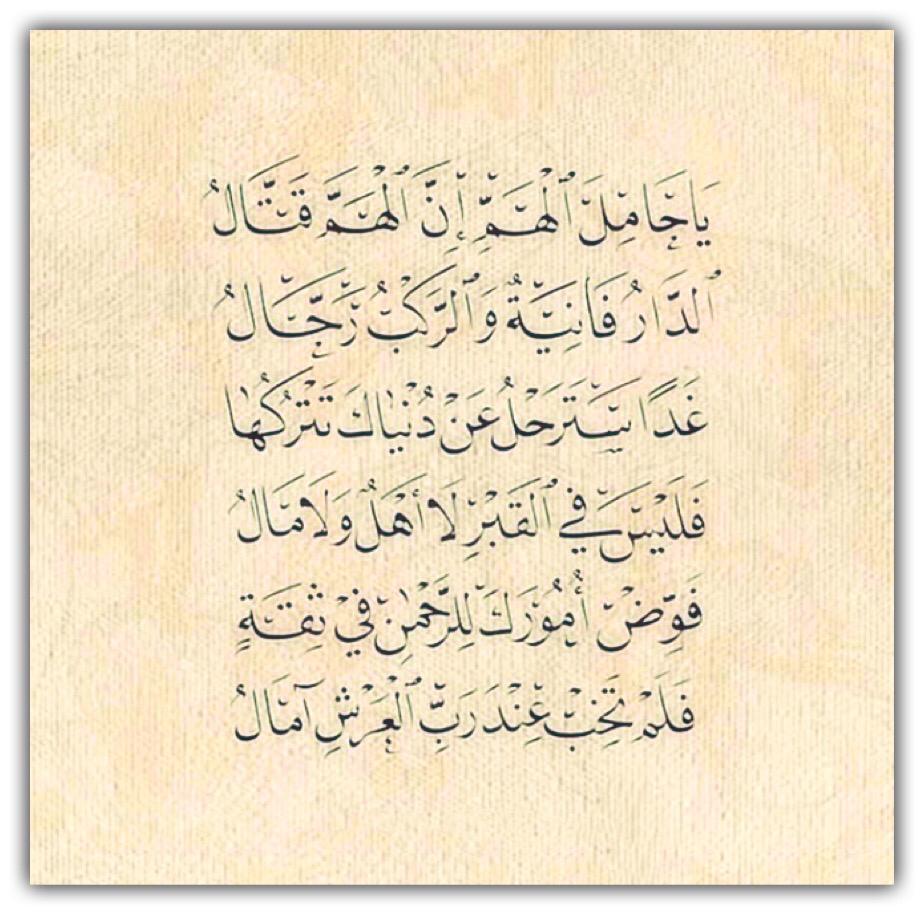 يَا حَامِلَ ٱلْهَمِّ إِنَّ ٱلْهَمَّ قَتَّالُ
ٱلدَّارُ فَانِيَةٌ وَٱلرَّكْبُ رَحَّالُ
غَدًا سَتَرْحَلُ عَنْ دُنْيَاكَ تَتْرُكُهَا
فَلَيْسَ فِي ٱلْقَبْرِ لَا أَهْلٌ وَلَا مَالُ
فَوِّضْ أُمُورَكَ لِلرَّحْمٰنِ فِي ثِقَةٍ
فَلَمْ تَخِبْ عِنْدَ رَبِّ ٱلْعَرْشِ آمَالُ